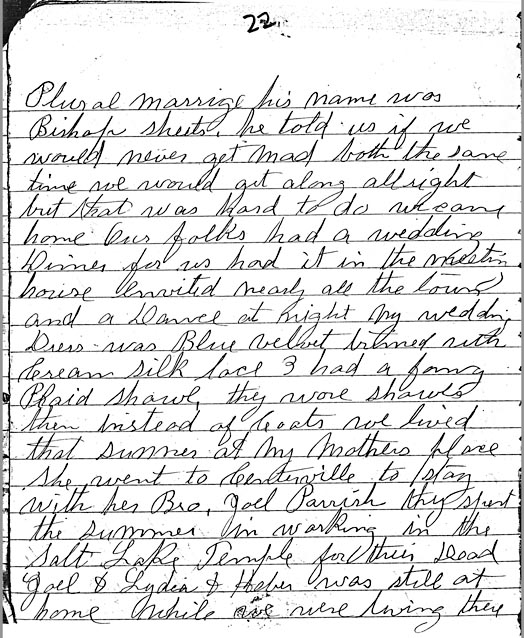 22
Plural marrige his name was
Bishop sheets. he told us if we
would never get mad both the same
time we would get along allright
but that was hard to do we came
home Our folks had a wedding
Dinner for us had it in the meetin
house Envited nearly all the town
and a Dance at night My weddin
Dress was Blue velvet trimed with
Cream silk lace I had a fancy
Plaid shawl, they wore shawls
then instead of Coats we lived
that summer at My Mothers place
She went to Centerville to stay
with her Bro, Joel Parrish they spent
the summer in working in the
Salt Lake Temple for their Dead
Joel & Lydia & Heber was still at
home While we were living there